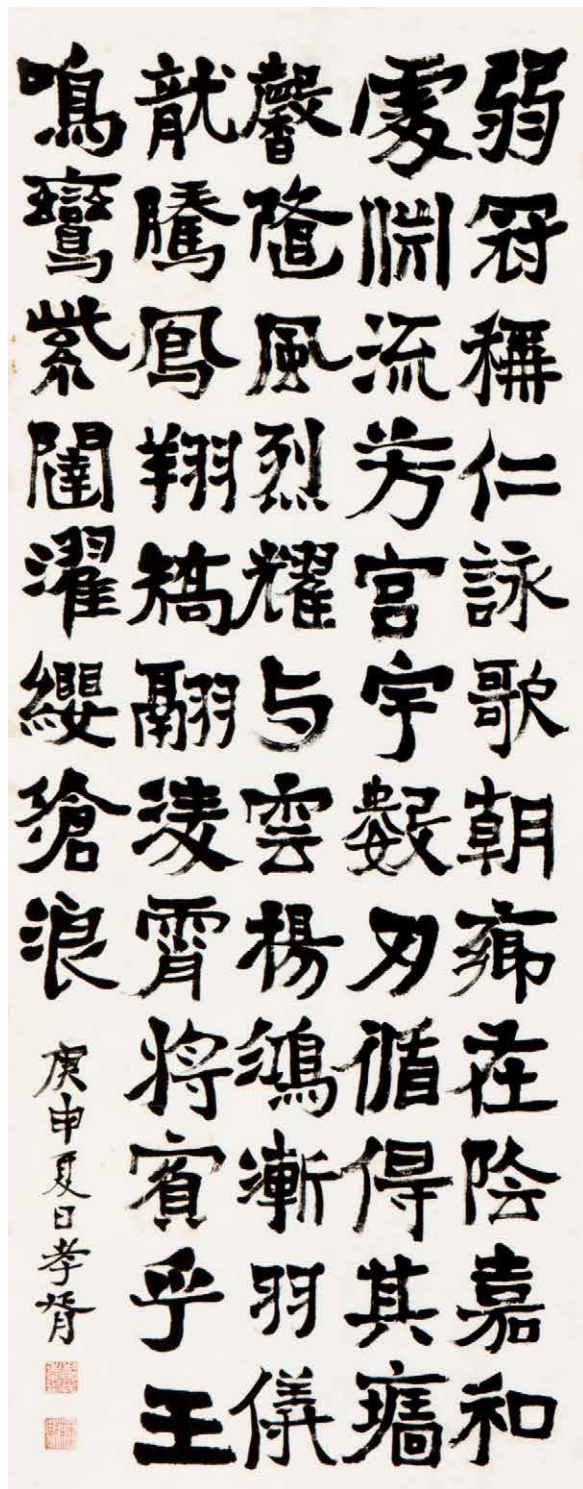 弱冠稱仁詠歌朝鄉在陰嘉和
處渊流芳宮宇數刃循得其墻
馨隨風烈耀与雲楊鴻漸羽儀
龍騰鳳翔矯翮淩霄將賓乎王
鳴鸞紫闥濯纓滄浪
庚申夏日孝胥